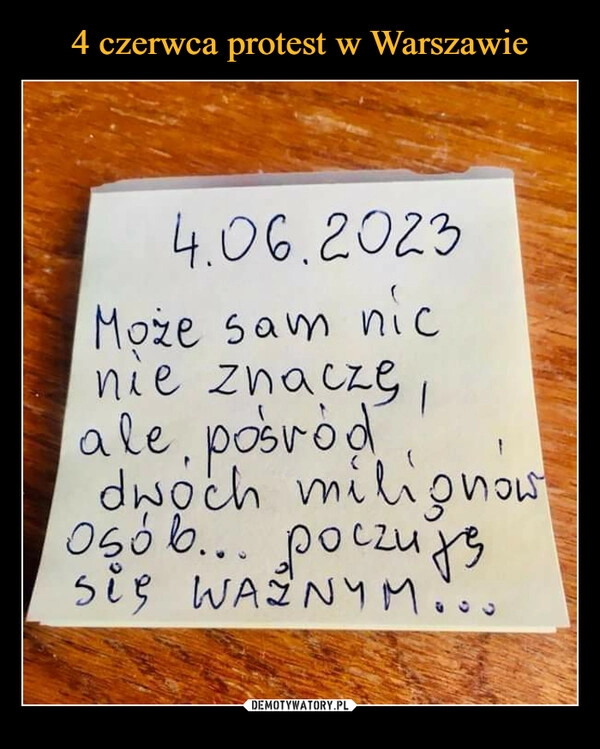 4 czerwca protest w Warszawie
4.06.2023
Może sam nic
nie znaczę,
ale pośród
dwóch milionów
osób... poczuję
się WAŻNYM...
DEMOTYWATORY.PL